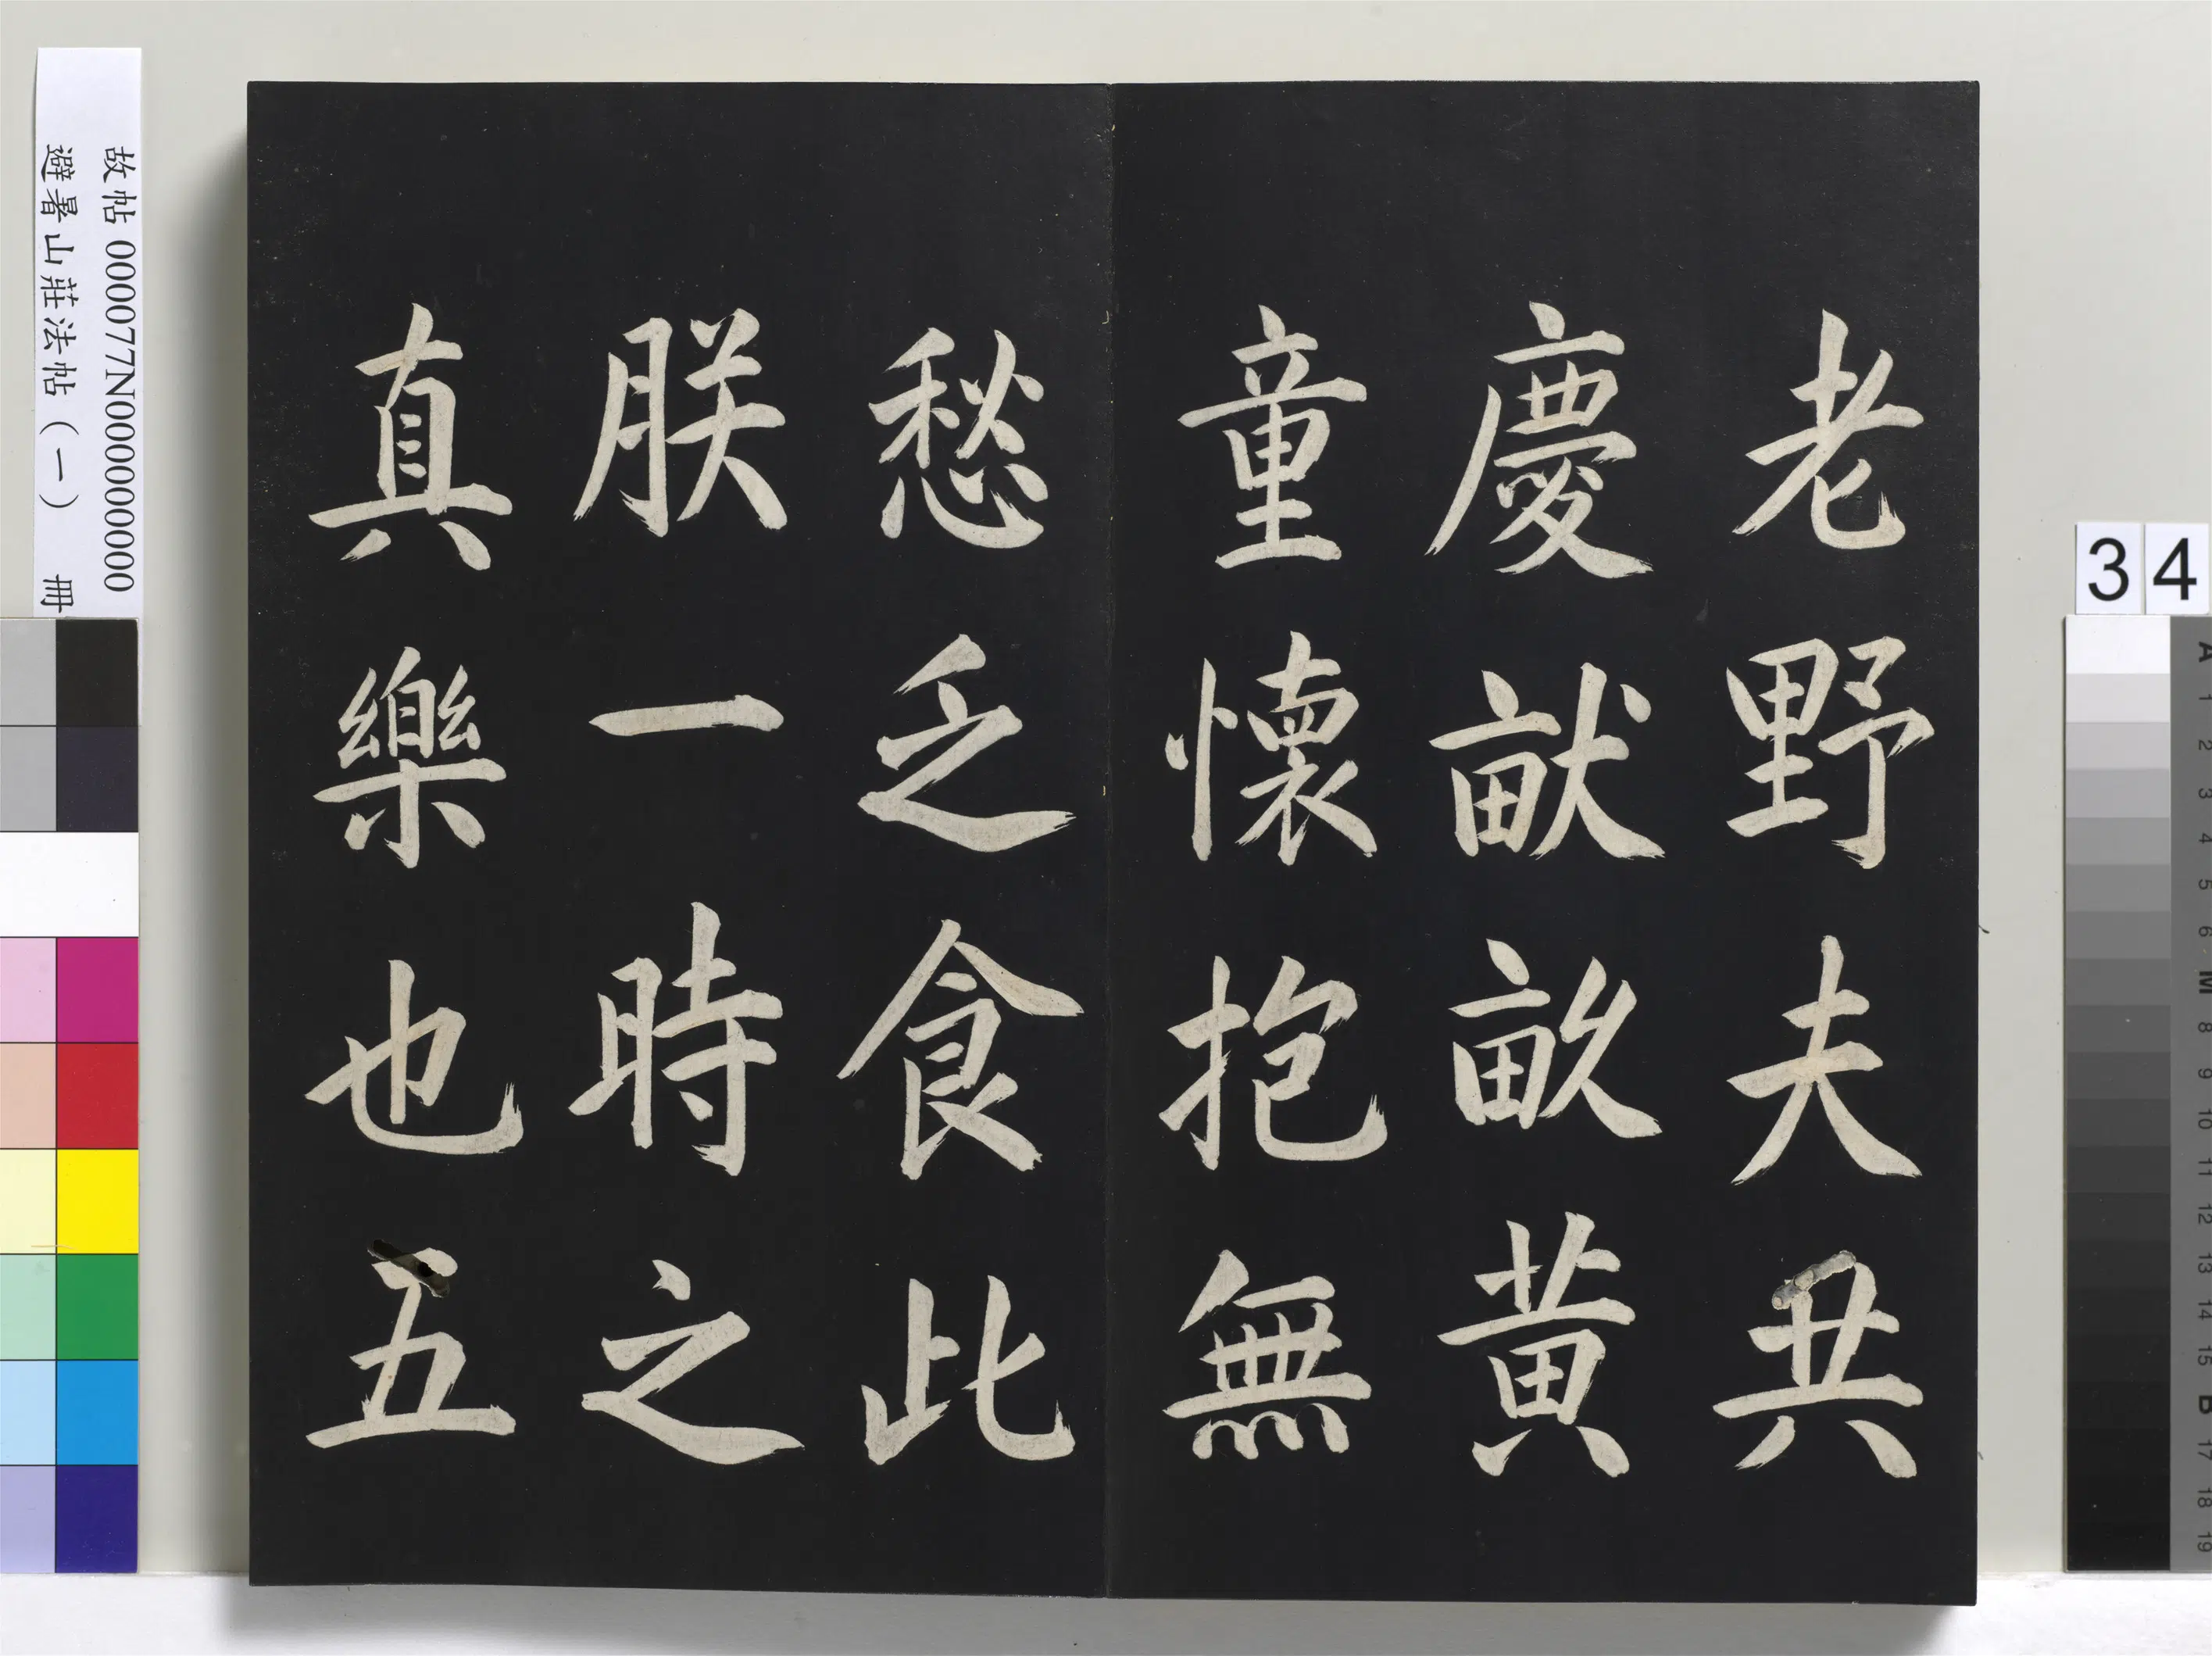 老野夫共
慶畎畝黃
童懷抱無
愁乏食此
朕一時之
真樂也五
故帖 000077N000000000
避暑山莊法帖（一） 冊
34
A 1 2 3 4 5 6 M 8 9 10 11 12 13 14 15 B 17 18 19